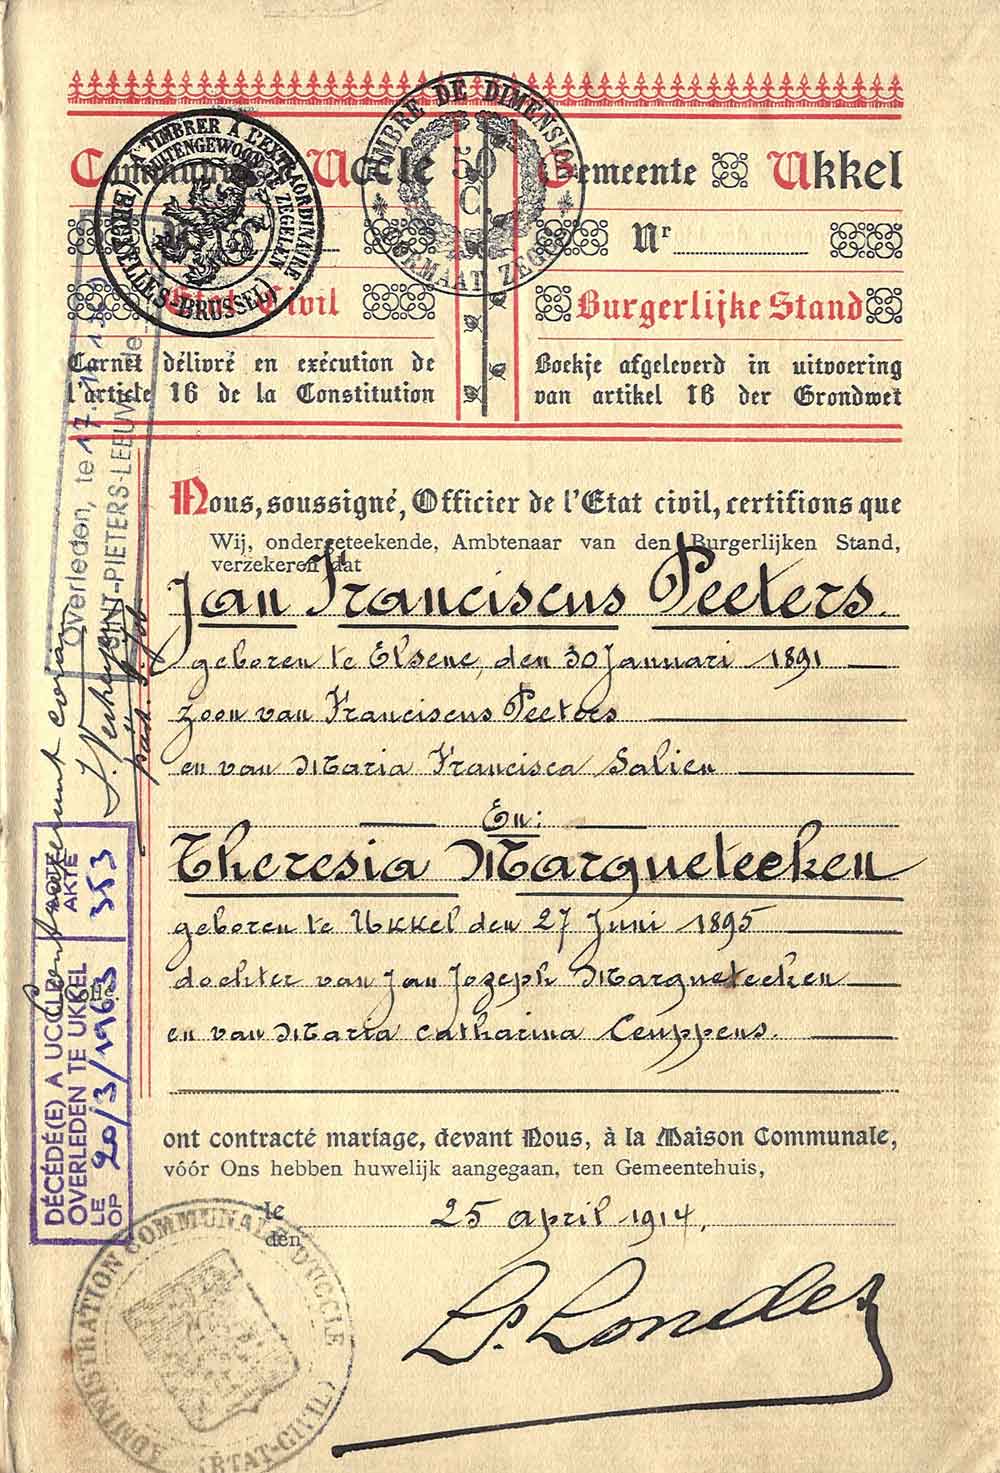 Commune Uccle
Gemeente Ukkel
Nr
Etat Civil
Burgerlijke Stand
Carnet délivré en exécution de
l'article 16 de la Constitution
Boekje afgeleverd in uitvoering
van artikel 16 der Grondwet
A TIMBRER À L'EXTRAORDINAIRE
BUITENGEWOON TE ZEGELEN
BRUXELLES-BRUSSEL
TIMBRE DE DIMENSION
50
C.
FORMAATZEGEL
Nous, soussigné, Officier de l'Etat civil, certifions que
Wij, ondergeteekende, Ambtenaar van den Burgerlijken Stand,
verzekeren dat
Jan Franciscus Peeters.
geboren te Elsene, den 30 Januari 1891
zoon van Franciscus Peeters
en van Maria Francisca Salien
En:
Theresia Margueteeken
geboren te Ukkel den 27 Juni 1895
dochter van Jan Jozeph Margueteeken
en van Maria Catharina Ceuppens.
ont contracté mariage, devant Nous, à la Maison Communale,
vóór Ons hebben huwelijk aangegaan, ten Gemeentehuis,
le
den
25 april 1914,
Overleden, te
SINT-PIETERS-LEEUW
DÉCÉDÉ(E) A UCCLE
OVERLEDEN TE UKKEL
LE
OP
20/3/1963
ACTE
AKTE
353
ADMINISTRATION COMMUNALE D'UCCLE
(ÉTAT-CIVIL)